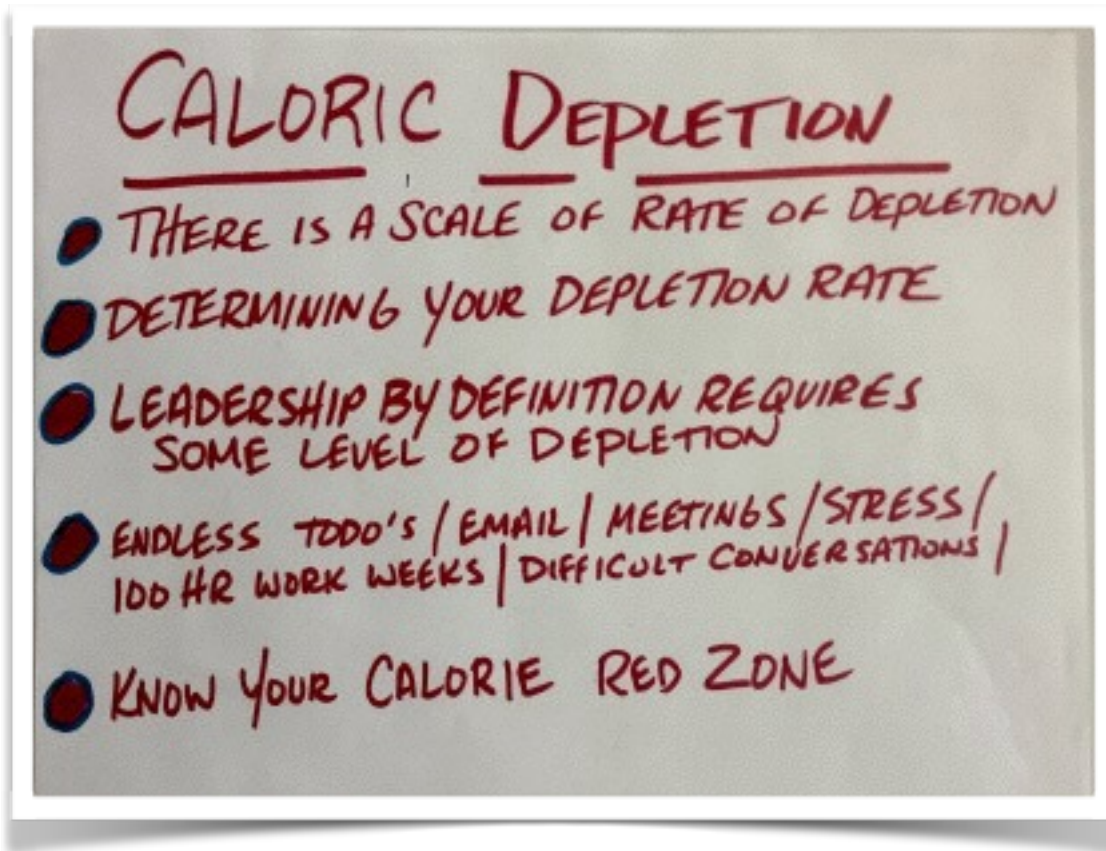 CALORIC DEPLETION
THERE IS A SCALE OF RATE OF DEPLETION
DETERMINING YOUR DEPLETION RATE
LEADERSHIP BY DEFINITION REQUIRES
SOME LEVEL OF DEPLETION
ENDLESS TODO'S / EMAIL / MEETINGS / STRESS /
100 HR WORK WEEKS / DIFFICULT CONVERSATIONS /
KNOW YOUR CALORIE RED ZONE